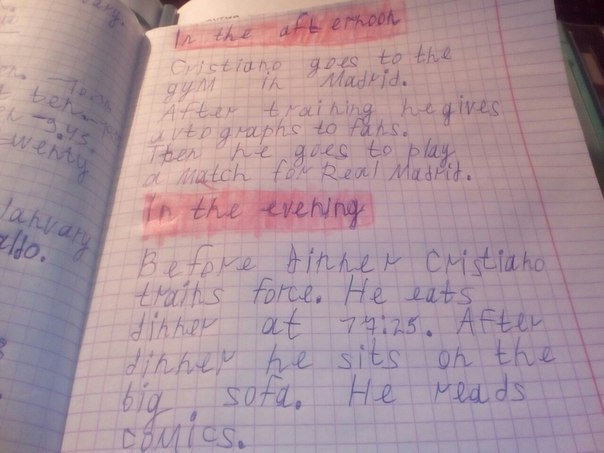 ten.
wenty
January
In the afternoon
Cristiano goes to the
gym in Madrid.
After training he gives
avtographs to fans.
Then he goes to play
a match for Real Madrid.
In the evening
Before dinner Cristiano
trains force. He eats
dinner at 17:25. After
dinner he sits on the
big sofa. He reads
comics.